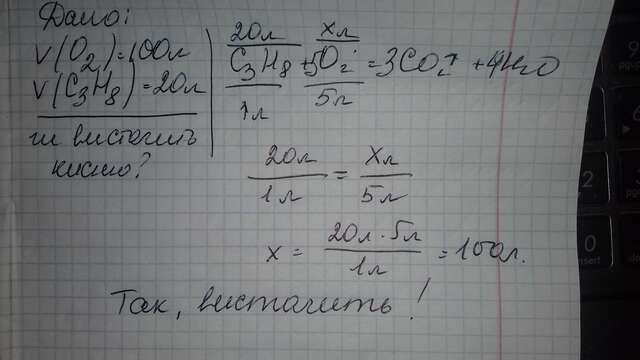 Дано:
V(O₂)=100л
V(C₃H₈)=20л
чи вистачить
кисню?
20л хл
C₃H₈ + 5O₂ = 3CO₂ + 4H₂O
1л 5л
20л/1л = Xл/5л
x = 20л·5л/1л = 100л.
Так, вистачить!